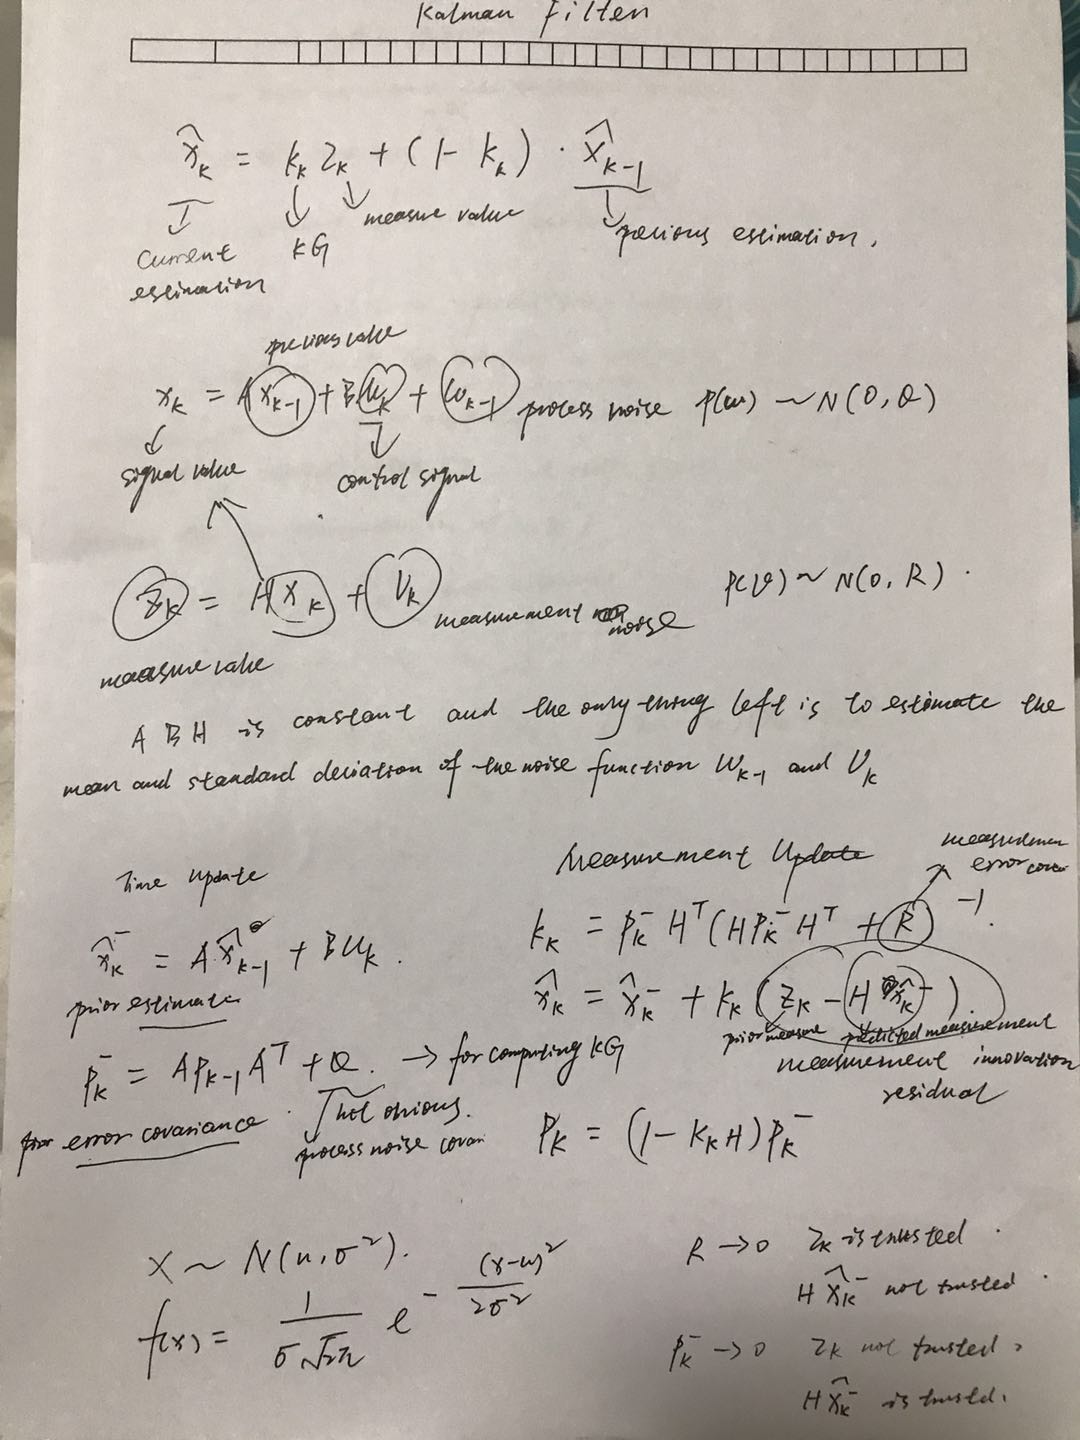 Kalman Filten
x̂ₖ = kₖ Zₖ + (1 - kₖ) · x̂ₖ₋₁
current estimation
KG
measure value
previous estimation.
previous value
xₖ = A xₖ₋₁ + B uₖ + ωₖ₋₁ process noise p(w) ~ N(0, Q)
signal value
control signal
Zₖ = H xₖ + Vₖ measurement noise P(v) ~ N(0, R).
measure value
A B H is constant and the only thing left is to estimate the
mean and standard deviation of the noise function Wₖ₋₁ and Vₖ
Time update
x̂ₖ⁻ = A x̂ₖ₋₁ + B uₖ.
prior estimate
Pₖ⁻ = A Pₖ₋₁ Aᵀ + Q. → for computing KG
prior error covariance
not obvious.
process noise covari
Measurement Update
measuremen
error cova
kₖ = Pₖ⁻ Hᵀ (H Pₖ⁻ Hᵀ + R)⁻¹.
x̂ₖ = x̂ₖ⁻ + kₖ (Zₖ - H x̂ₖ⁻)
prior measure predicted measurement
measurement innovation
residual
Pₖ = (1 - Kₖ H) Pₖ⁻
X ~ N(u, σ²).
f(x) = 1/(σ√2π) e^-(x-u)²/2σ²
R → 0 Zₖ is trusted.
H x̂ₖ⁻ not trusted.
Pₖ⁻ → 0 Zₖ not trusted.
H x̂ₖ⁻ is trusted.